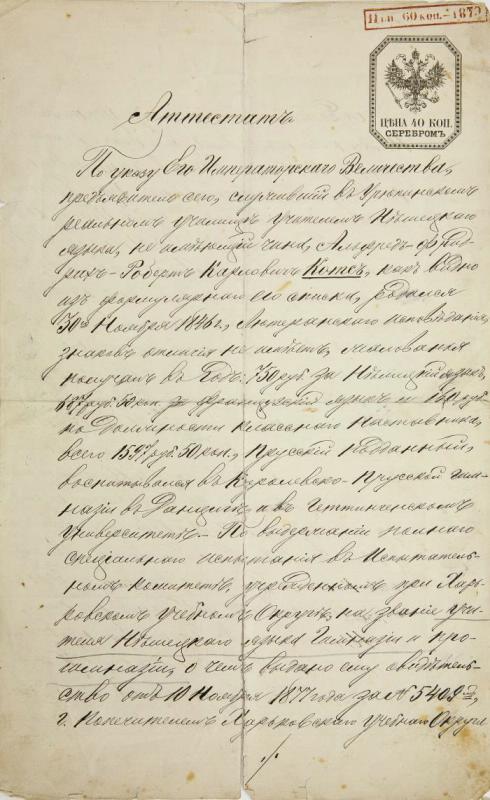 Ц ѣн 60 коп. 1879
ЦѢНА 40 КОП.
СЕРЕБРОМЪ
Аттестатъ
По указу Его Императорскаго Величества,
предъявитель сего, служившій въ Урюпинскомъ
реальномъ училищѣ учителемъ Нѣмецкаго
языка, не имѣющій чина, Альфредъ-Фрид-
рихъ-Робертъ Карловичъ Котсъ, какъ видно
изъ формулярнаго его списка, родился
30го Ноября 1846 г., Лютеранскаго исповѣданія,
знаковъ отличія не имѣетъ, жалованья
получалъ въ годъ: 750 руб. за Нѣмецкій языкъ,
687 руб. 50 коп. за Французскій языкъ и 160 руб.
по должности класснаго Наставника,
всего 1597 руб. 50 коп., Прусскій подданный,
воспитывался въ Королевско-Прусской гим-
назіи въ Данцигѣ и въ Геттингенскомъ
Университетѣ. - По выдержаніи полнаго
спеціальнаго испытанія въ Испытатель-
номъ комитетѣ, учрежденномъ при Харь-
ковскомъ учебномъ Округѣ, на званіе учи-
теля Нѣмецкаго языка Гимназіи и про-
гимназіи, о чемъ выдано ему свидѣтель-
ство отъ 10 Ноября 1877 года за № 5409й,
г. Попечителемъ Харьковскаго учебнаго Округа